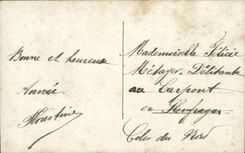 Bonne et heureuse
Année
Mademoiselle Félicie
Métayer. Débitante
au Carpont
en Ploufragan
Côtes du Nord